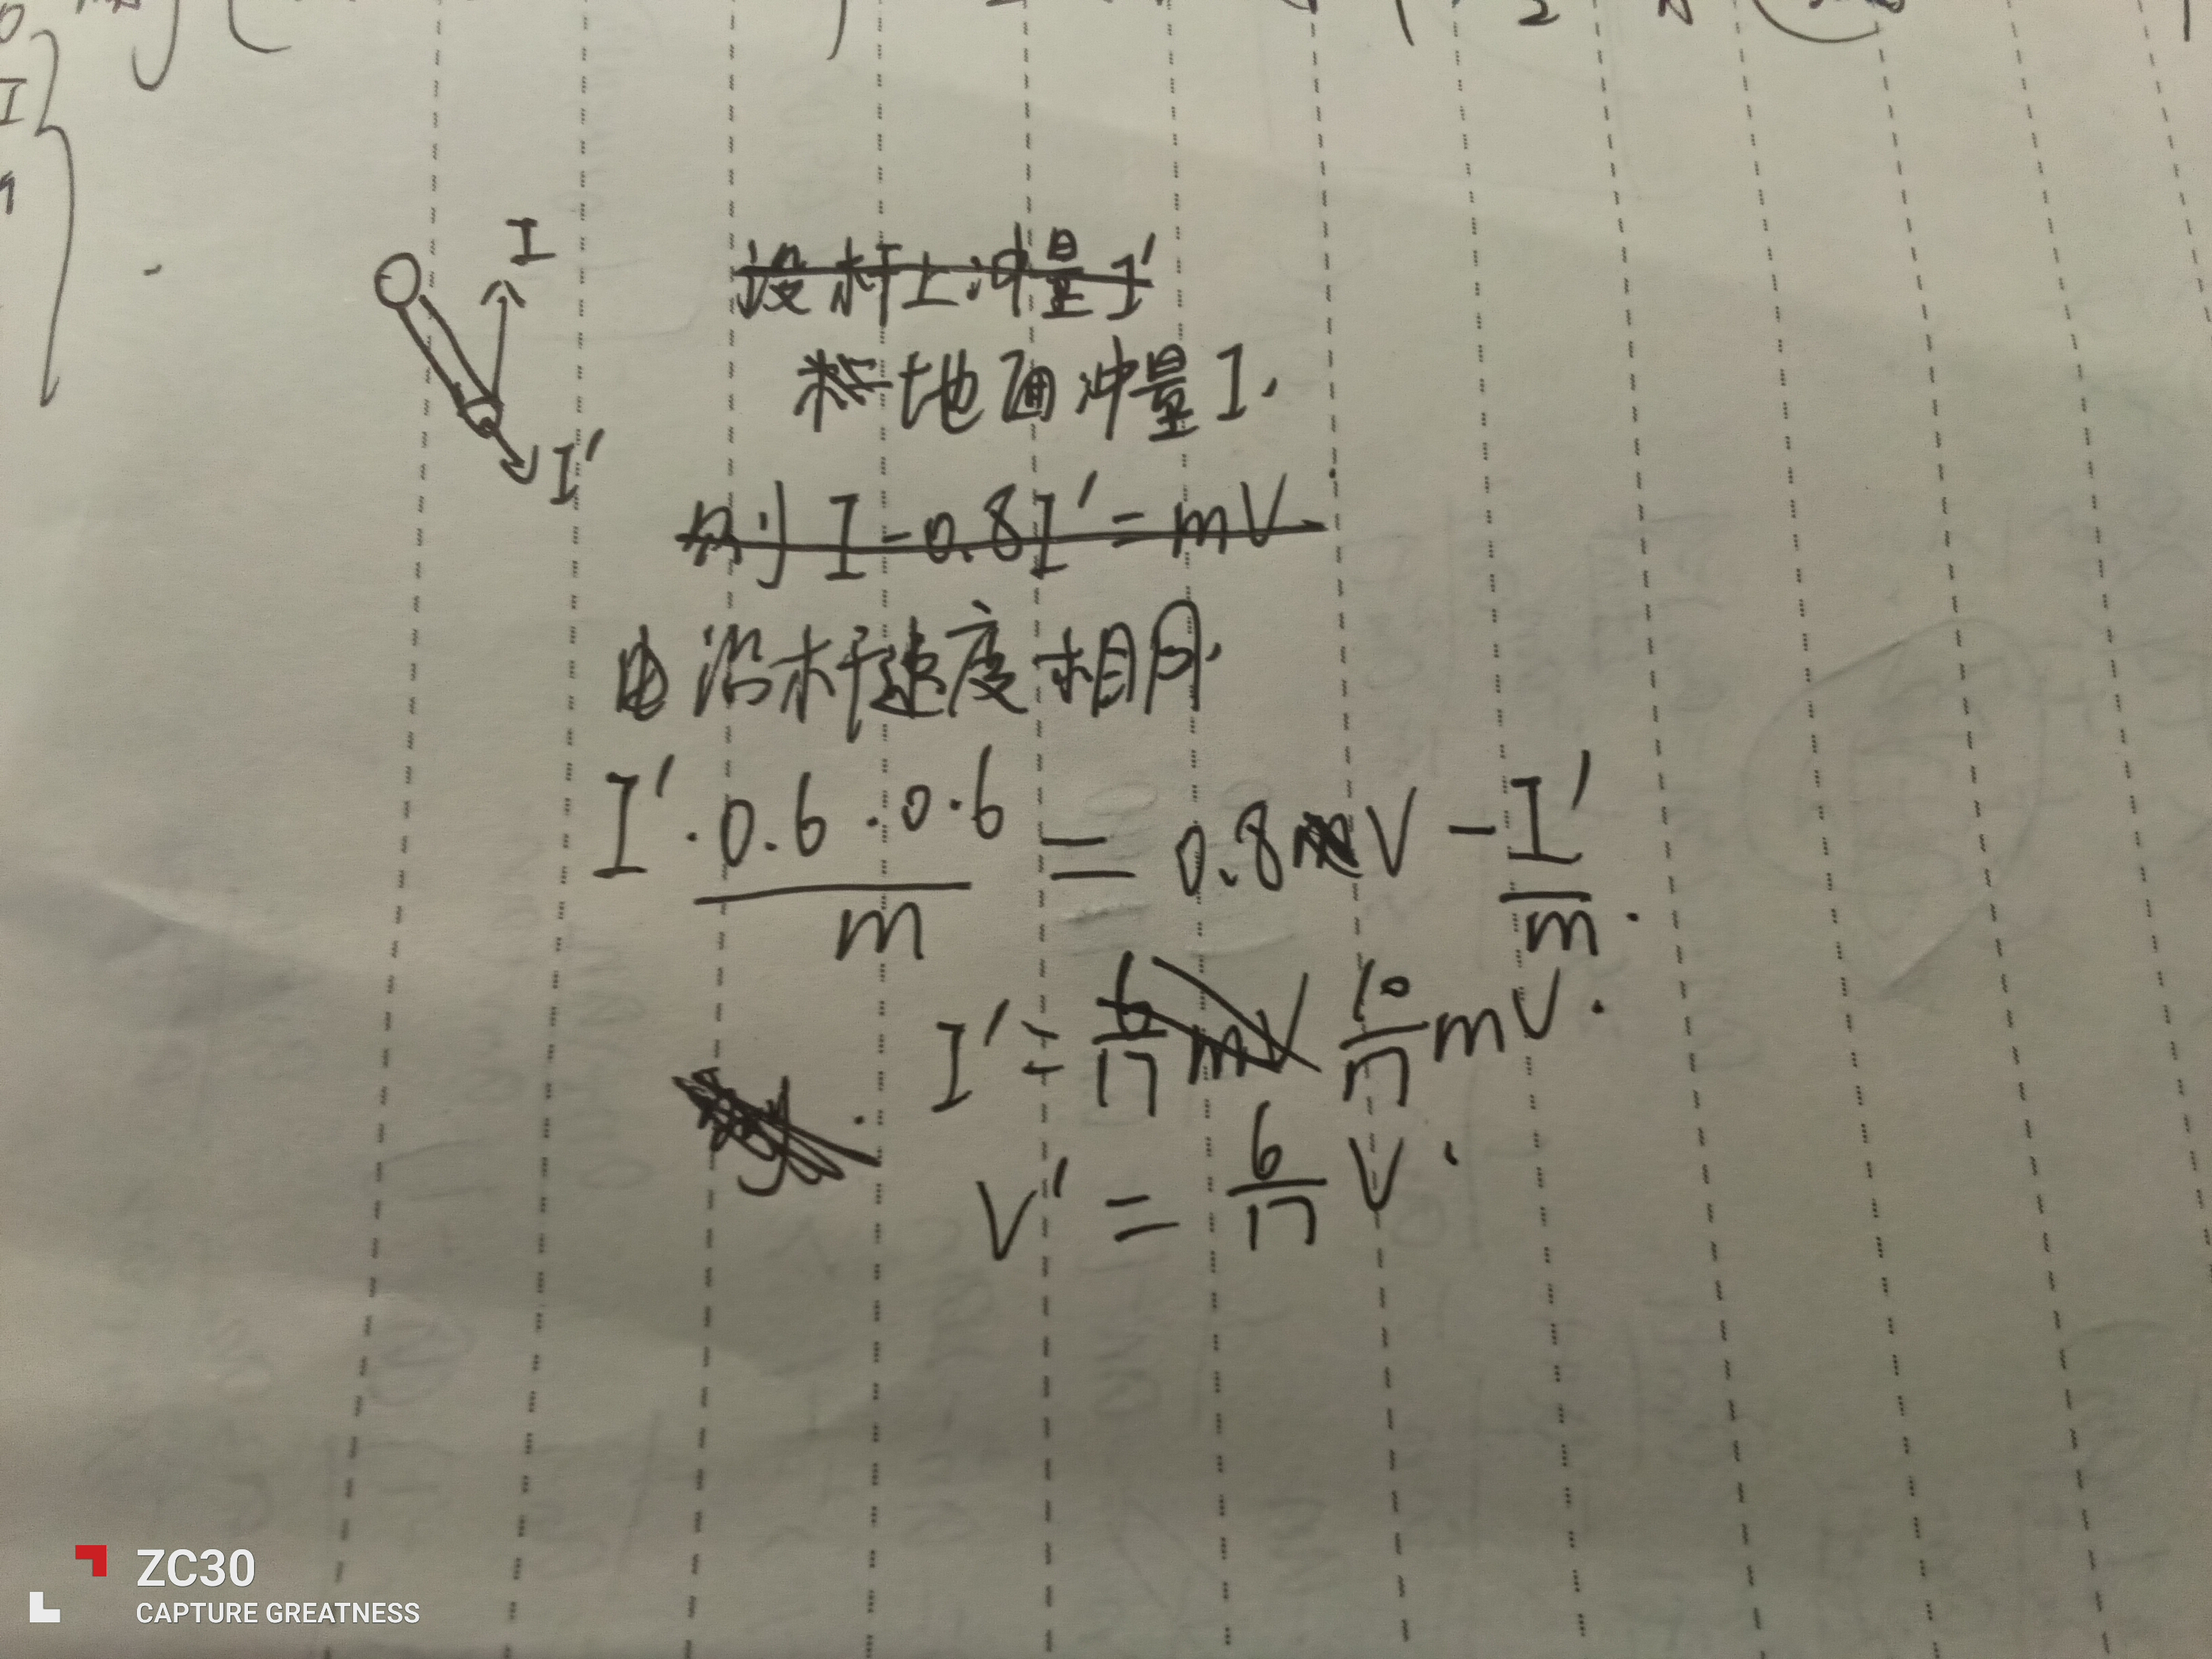 I
I
I'
设杆上冲量I'
地面冲量I.
则 I-0.8I'=mV
由沿杆速度相同.
I'·0.6·0.6/m = 0.8V - I'/m.
I' = 6/17 mV 10/17 mV.
V' = 6/17 V.
ZC30
CAPTURE GREATNESS